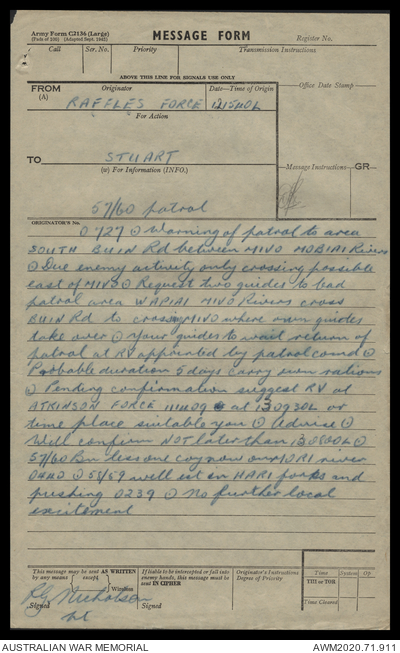 Army Form C2136 (Large)
(Pads of 100) (Adapted Sept. 1942)
MESSAGE FORM
Register No.
Call
Ser. No.
Priority
Transmission Instructions
ABOVE THIS LINE FOR SIGNALS USE ONLY
FROM
(A)
Originator
Date—Time of Origin
Office Date Stamp
RAFFLES FORCE 121540L
For Action
TO
STUART
(W) For Information (INFO.)
Message Instructions
GR
57/60 patrol
ORIGINATOR'S No.
0727 ⊙ Warning of patrol to area
SOUTH BUIN Rd between MIVO MOBIAI Rivers
⊙ Due enemy activity only crossing possible
east of MIVO ⊙ Request two guides to lead
patrol area WAPIAI MIVO Rivers cross
BUIN Rd to crossing MIVO where own guides
take over ⊙ Your guides to wait return of
patrol at RV appointed by patrol comd ⊙
Probable duration 5 days carry own rations
⊙ Pending confirmation suggest RV at
ATKINSON FORCE 111409 at 130930L or
time place suitable you ⊙ Advise ⊙
Will confirm NOT later than 130800L ⊙
57/60 Bn less one coy now over river
⊙ 58/59 well est in HARI forks and
pushing 0239 ⊙ No further local
excitement
This message may be sent AS WRITTEN
by any means
except
Wireless
Signed
If liable to be intercepted or fall into
enemy hands, this message must be
sent IN CIPHER
Signed
Originator's Instructions
Degree of Priority
Time
System
Op
THI or TOR
Time Cleared
Nicholson
Lt
AUSTRALIAN WAR MEMORIAL
AWM2020.71.911